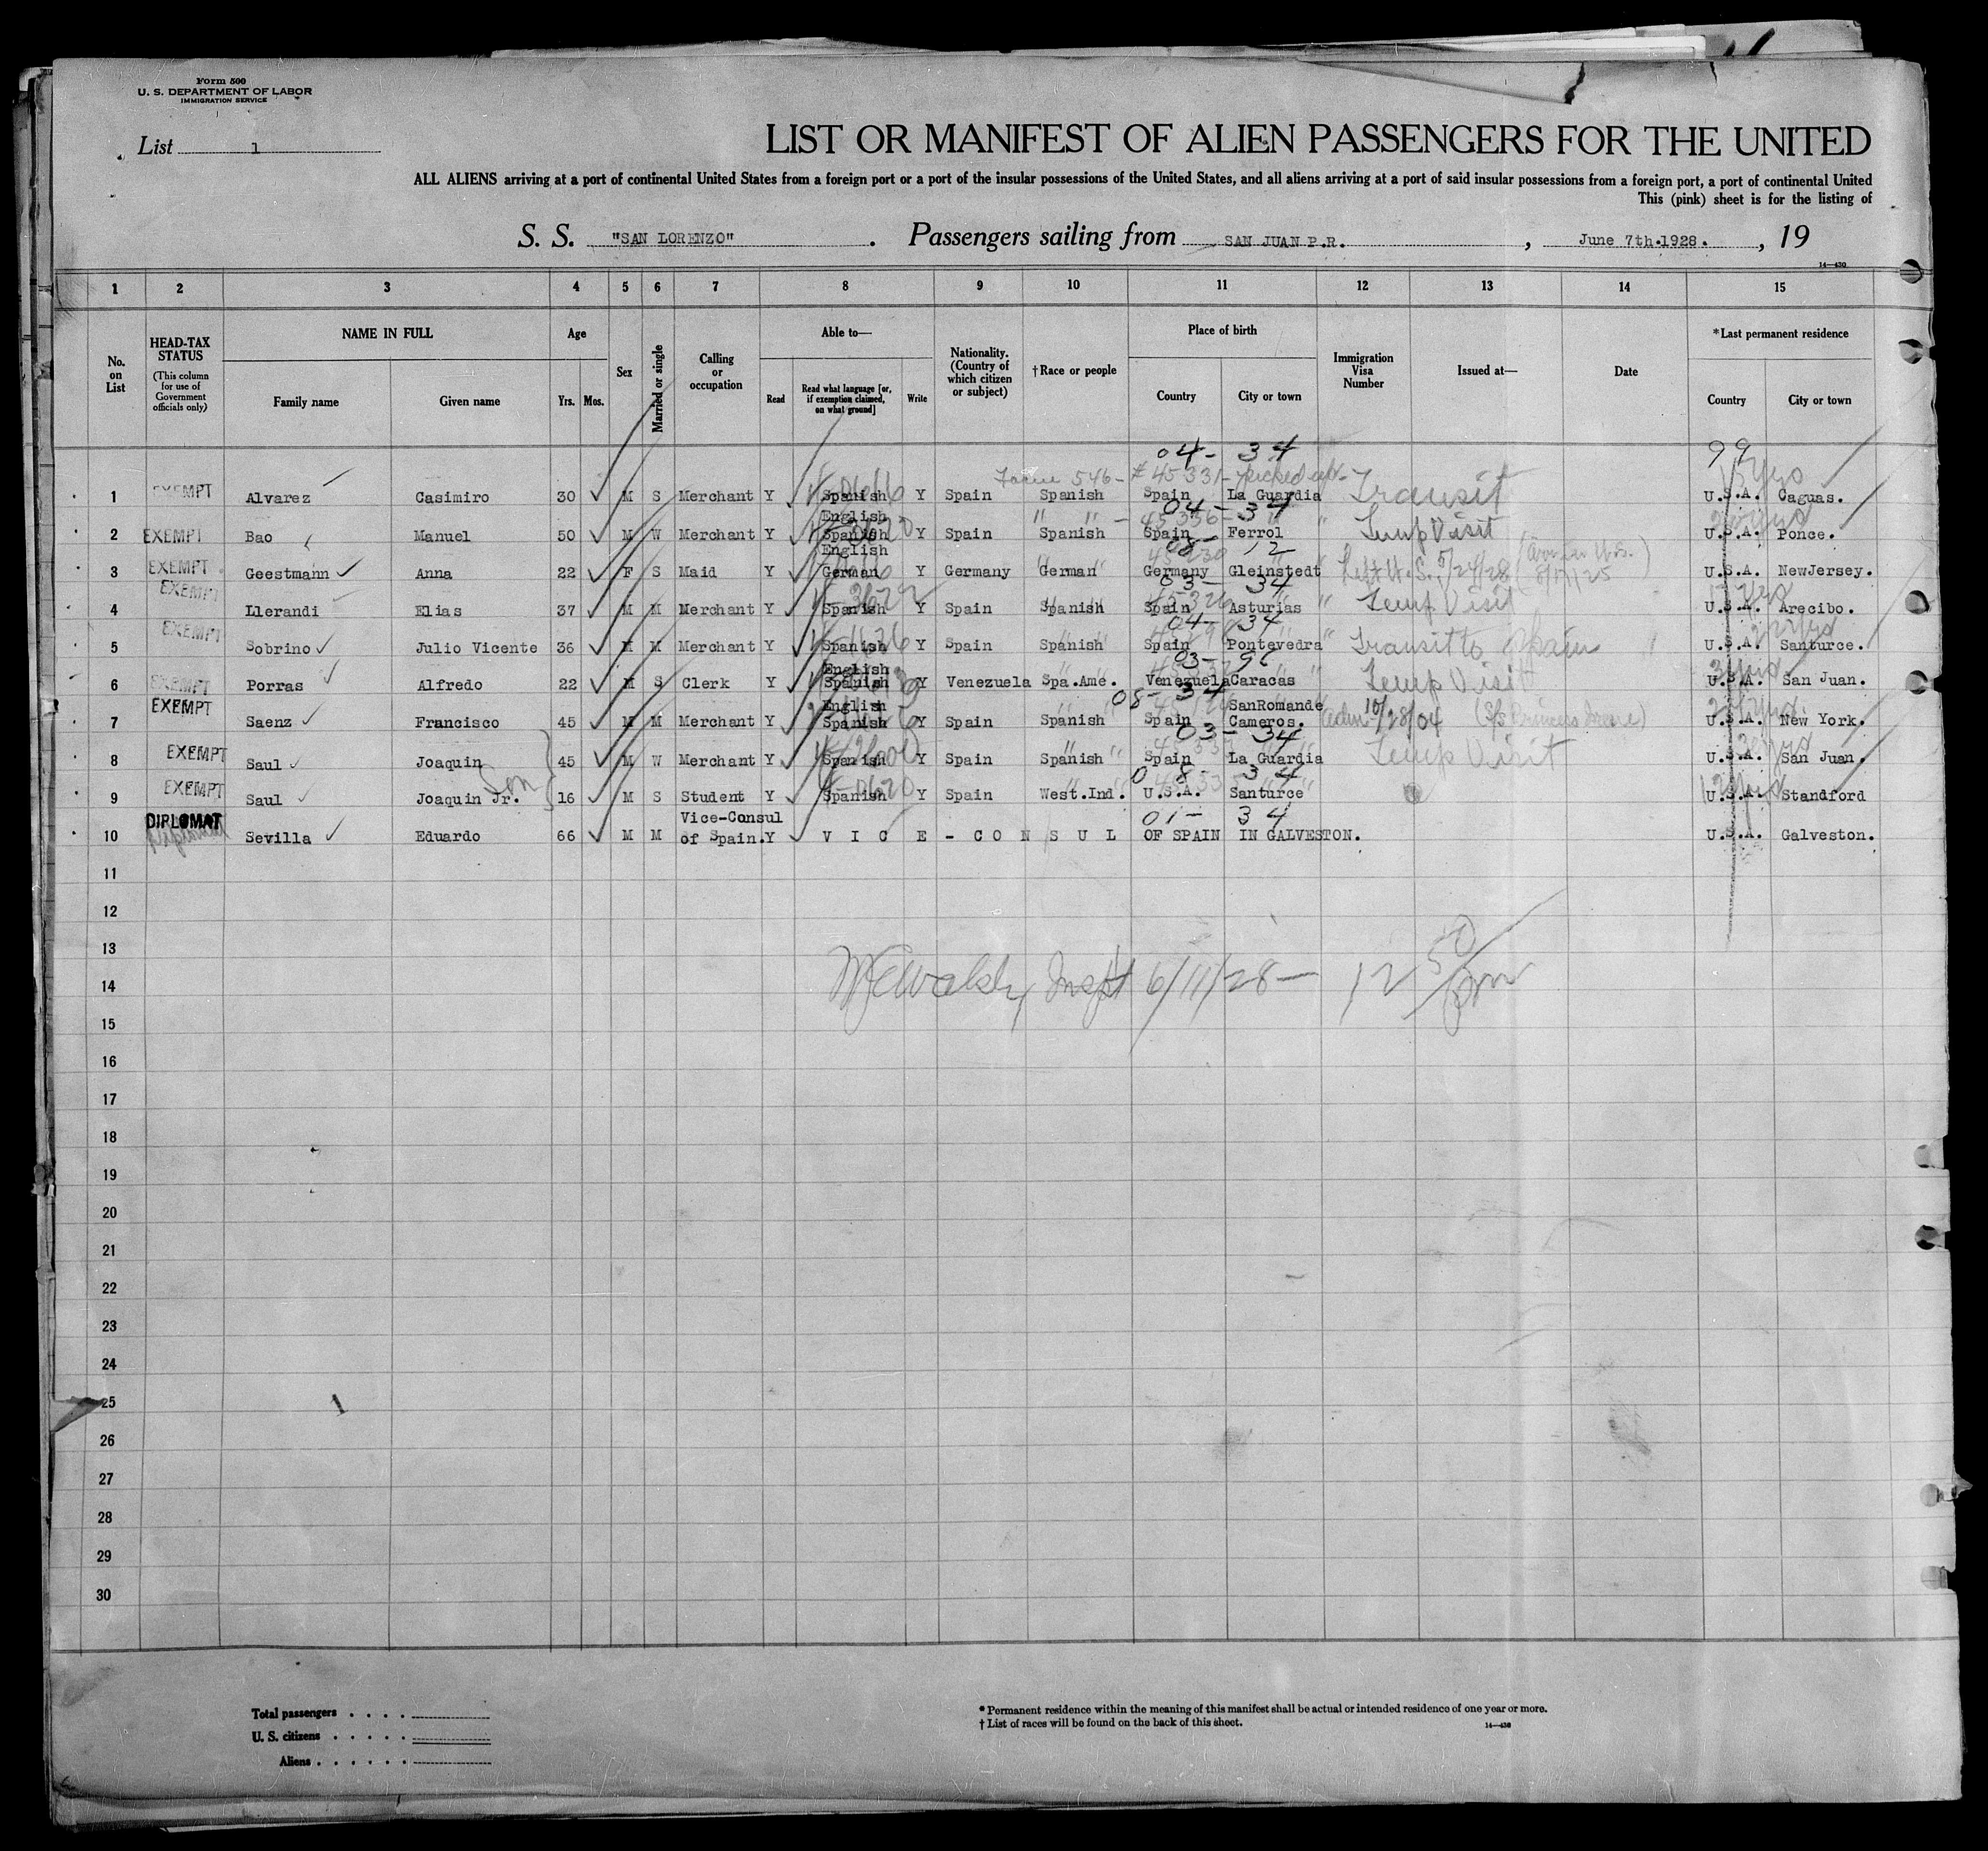 Form 500
U. S. DEPARTMENT OF LABOR
IMMIGRATION SERVICE
List 1
LIST OR MANIFEST OF ALIEN PASSENGERS FOR THE UNITED
ALL ALIENS arriving at a port of continental United States from a foreign port or a port of the insular possessions of the United States, and all aliens arriving at a port of said insular possessions from a foreign port, a port of continental United
This (pink) sheet is for the listing of
S. S. "SAN LORENZO". Passengers sailing from SAN JUAN P.R., June 7th.1928., 19
14—430
1 2 3 4 5 6 7 8 9 10 11 12 13 14 15
No. on List
HEAD-TAX STATUS (This column for use of Government officials only)
NAME IN FULL
Family name Given name
Age
Yrs. Mos.
Sex
Married or single
Calling or occupation
Able to—
Read Read what language [or, if exemption claimed, on what ground] Write
Nationality. (Country of which citizen or subject)
†Race or people
Place of birth
Country City or town
Immigration Visa Number
Issued at—
Date
*Last permanent residence
Country City or town
04- 34 99
Form 546- #45331- picked up-
1 EXEMPT Alvarez Casimiro 30 M S Merchant Y Spanish Y Spain Spanish Spain La Guardia Transit U.S.A. Caguas.
English 04- 34
2 EXEMPT Bao Manuel 50 M W Merchant Y Spanish Y Spain Spanish Spain Ferrol Temp Visit U.S.A. Ponce.
English 08- 12
3 EXEMPT Geestmann Anna 22 F S Maid Y German Y Germany German Germany Gleinstedt Left U.S. 5/24/28 U.S.A. NewJersey.
03- 34
4 EXEMPT Llerandi Elias 37 M M Merchant Y Spanish Y Spain Spanish Spain Asturias Temp Visit U.S.A. Arecibo.
04- 34
5 EXEMPT Sobrino Julio Vicente 36 M M Merchant Y Spanish Y Spain Spanish Spain Pontevedra Transit to Spain U.S.A. Santurce.
English 03-
6 EXEMPT Porras Alfredo 22 M S Clerk Y Spanish Y Venezuela Spa.Ame. Venezuela Caracas Temp Visit U.S.A. San Juan.
English 08- 34 SanRomande
7 EXEMPT Saenz Francisco 45 M M Merchant Y Spanish Y Spain Spanish Spain Cameros. Adm 10/28/04 (S/s Princess Irene) U.S.A. New York.
03- 34
8 EXEMPT Saul Joaquin 45 M W Merchant Y Spanish Y Spain Spanish Spain La Guardia Temp Visit U.S.A. San Juan.
Son 08- 34
9 EXEMPT Saul Joaquin Jr. 16 M S Student Y Spanish Y Spain West.Ind. U.S.A. Santurce U.S.A. Standford
DIPLOMAT Vice-Consul 01- 34
10 Sevilla Eduardo 66 M M of Spain. Y V I C E - C O N S U L OF SPAIN IN GALVESTON. U.S.A. Galveston.
11
12
13
14 Inspt 6/11/28— 12 50/pm
15
16
17
18
19
20
21
22
23
24
25
26
27
28
29
30
Total passengers . . . .
U. S. citizens . . . . .
Aliens . . . . . .
* Permanent residence within the meaning of this manifest shall be actual or intended residence of one year or more.
† List of races will be found on the back of this sheet.
14—430